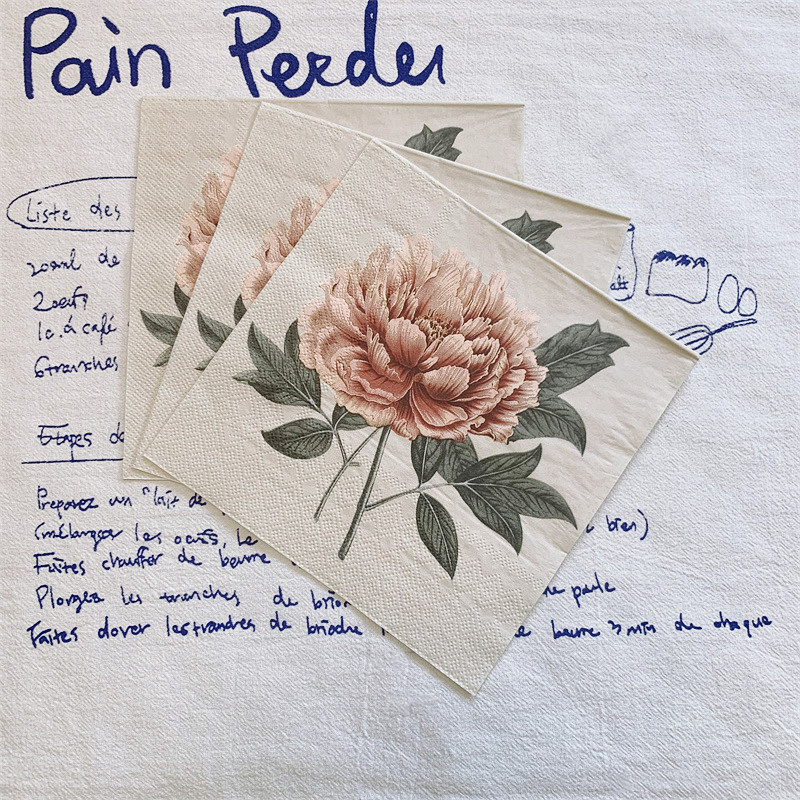 Pain Perdu
Liste des
200ml de
2 oeufs
1c. à café
6 tranches
Etapes de
Preparez un "lait de
(mélangez les oeufs, le bien)
Faites chauffer de beurre
Plongez les tranches de brio
Faites dorer les tranches de brioche beurre 3 min de chaque